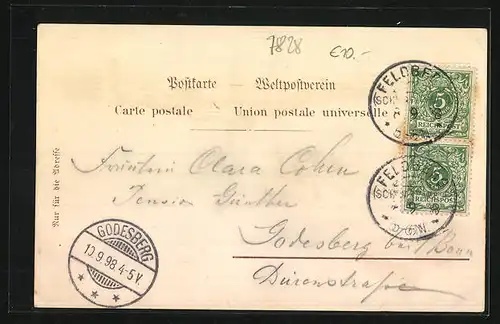 7828 €10.-
Postkarte — Weltpostverein
Carte postale — Union postale universelle
Nur für die Adresse
Fräulein Clara Cohen
Pension Günther
Godesberg bei Bonn
Dürenstraße
GODESBERG
10.9.98.4-5V.
FELDBERG
5
REICHSPOST
FELDBERG
5
REICHSPOST